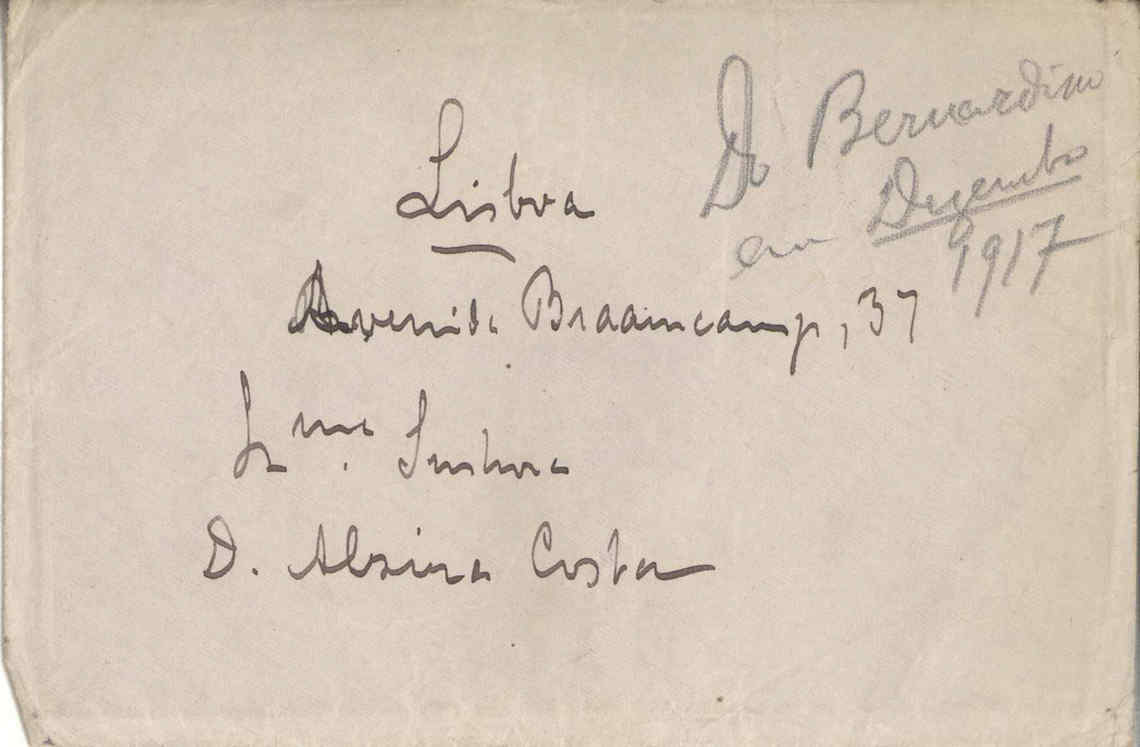 Do Bernardino
em Dezembro
1917
Lisboa
Avenida Braamcamp, 37
Ex.ma Senhora
D. Alzira Costa